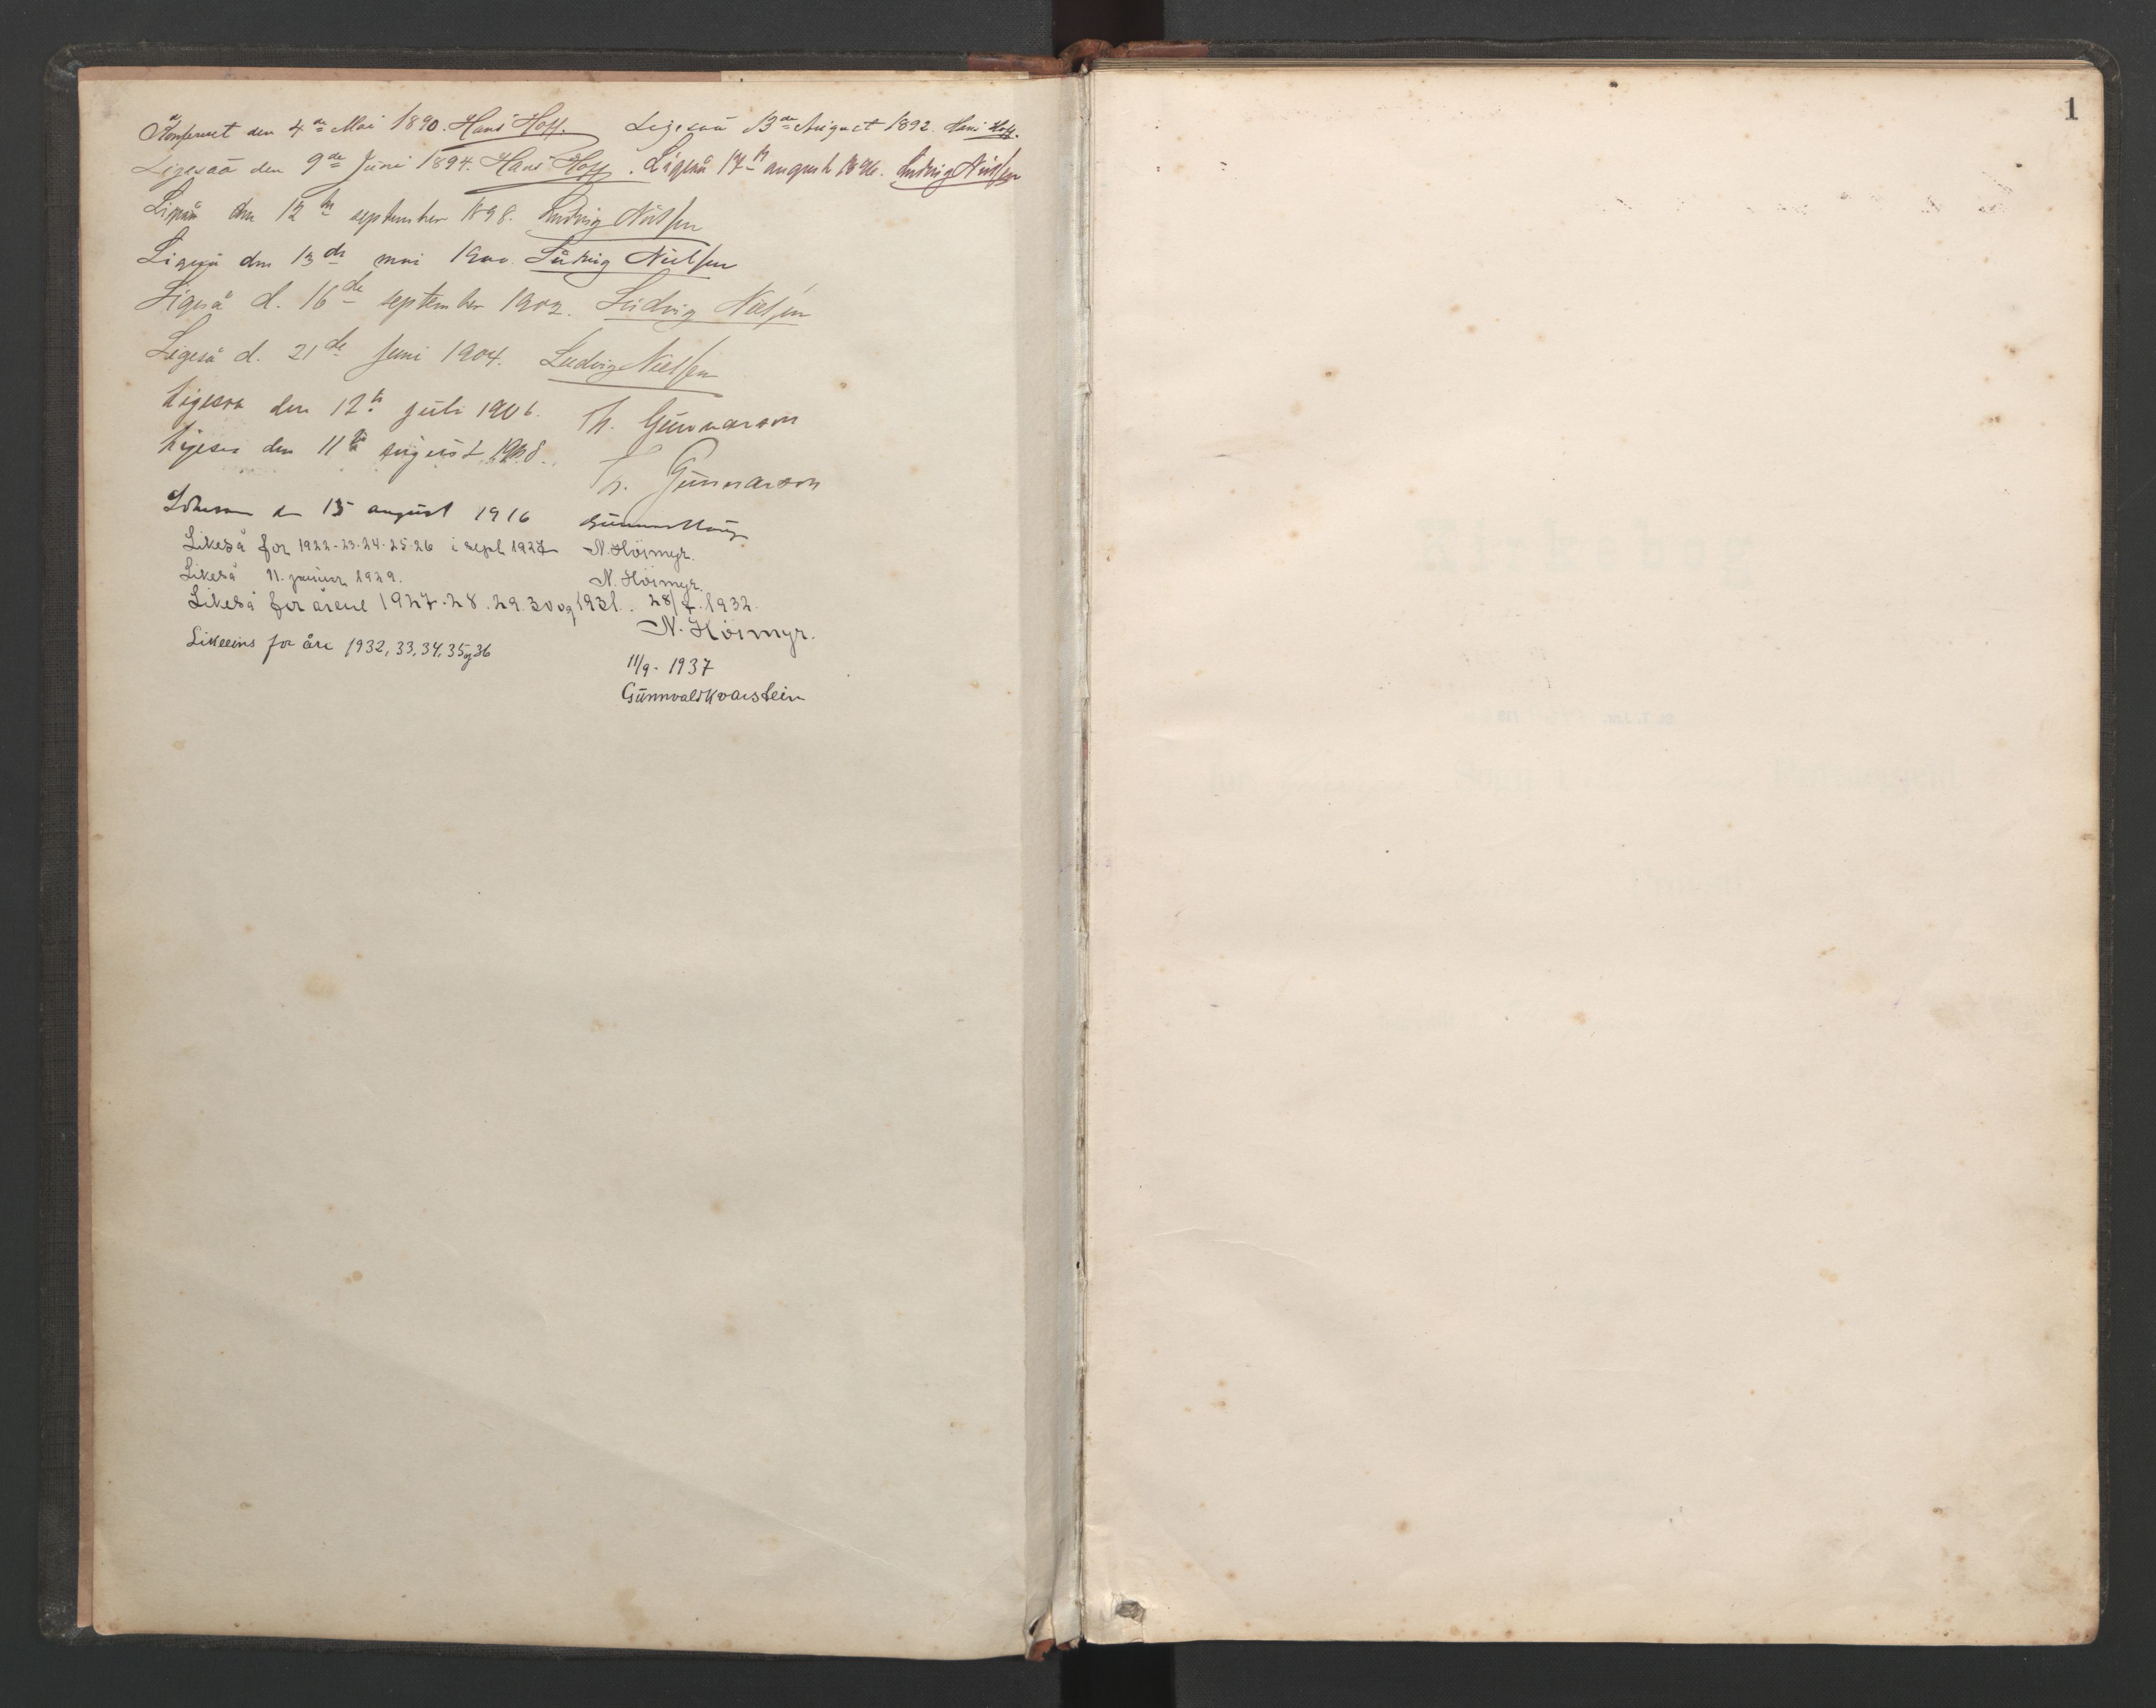 Konferert den 4de Mai 1890. Hans Hoff. Ligesaa 13de August 1892. Hans Hoff.
Ligesaa den 9de Juni 1894. Hans Hoff. Ligeså 17de august 1896. Ludvig Nielsen
Ligeså den 12te september 1898. Ludvig Nielsen
Ligeså den 13de mai 1900. Ludvig Nielsen
Ligeså d. 16de september 1902. Ludvig Nielsen
Ligeså d. 21de Juni 1904. Ludvig Nielsen
Ligesaa den 12te juli 1906. Th. Gunnarson
Ligesaa den 11te august 1908. Th. Gunnarson
15 august 1916
Likeså for 1922-23-24-25-26 i sept 1927 N. Höimyr.
Likeså 11. januar 1929. N. Höimyr.
Likeså for årene 1927-28.29.30 og 1931. 1932.
N. Höimyr.
Likeeins for åre 1932, 33, 34, 35 og 36
11/9- 1937
Gunnvald Kvarstein
1